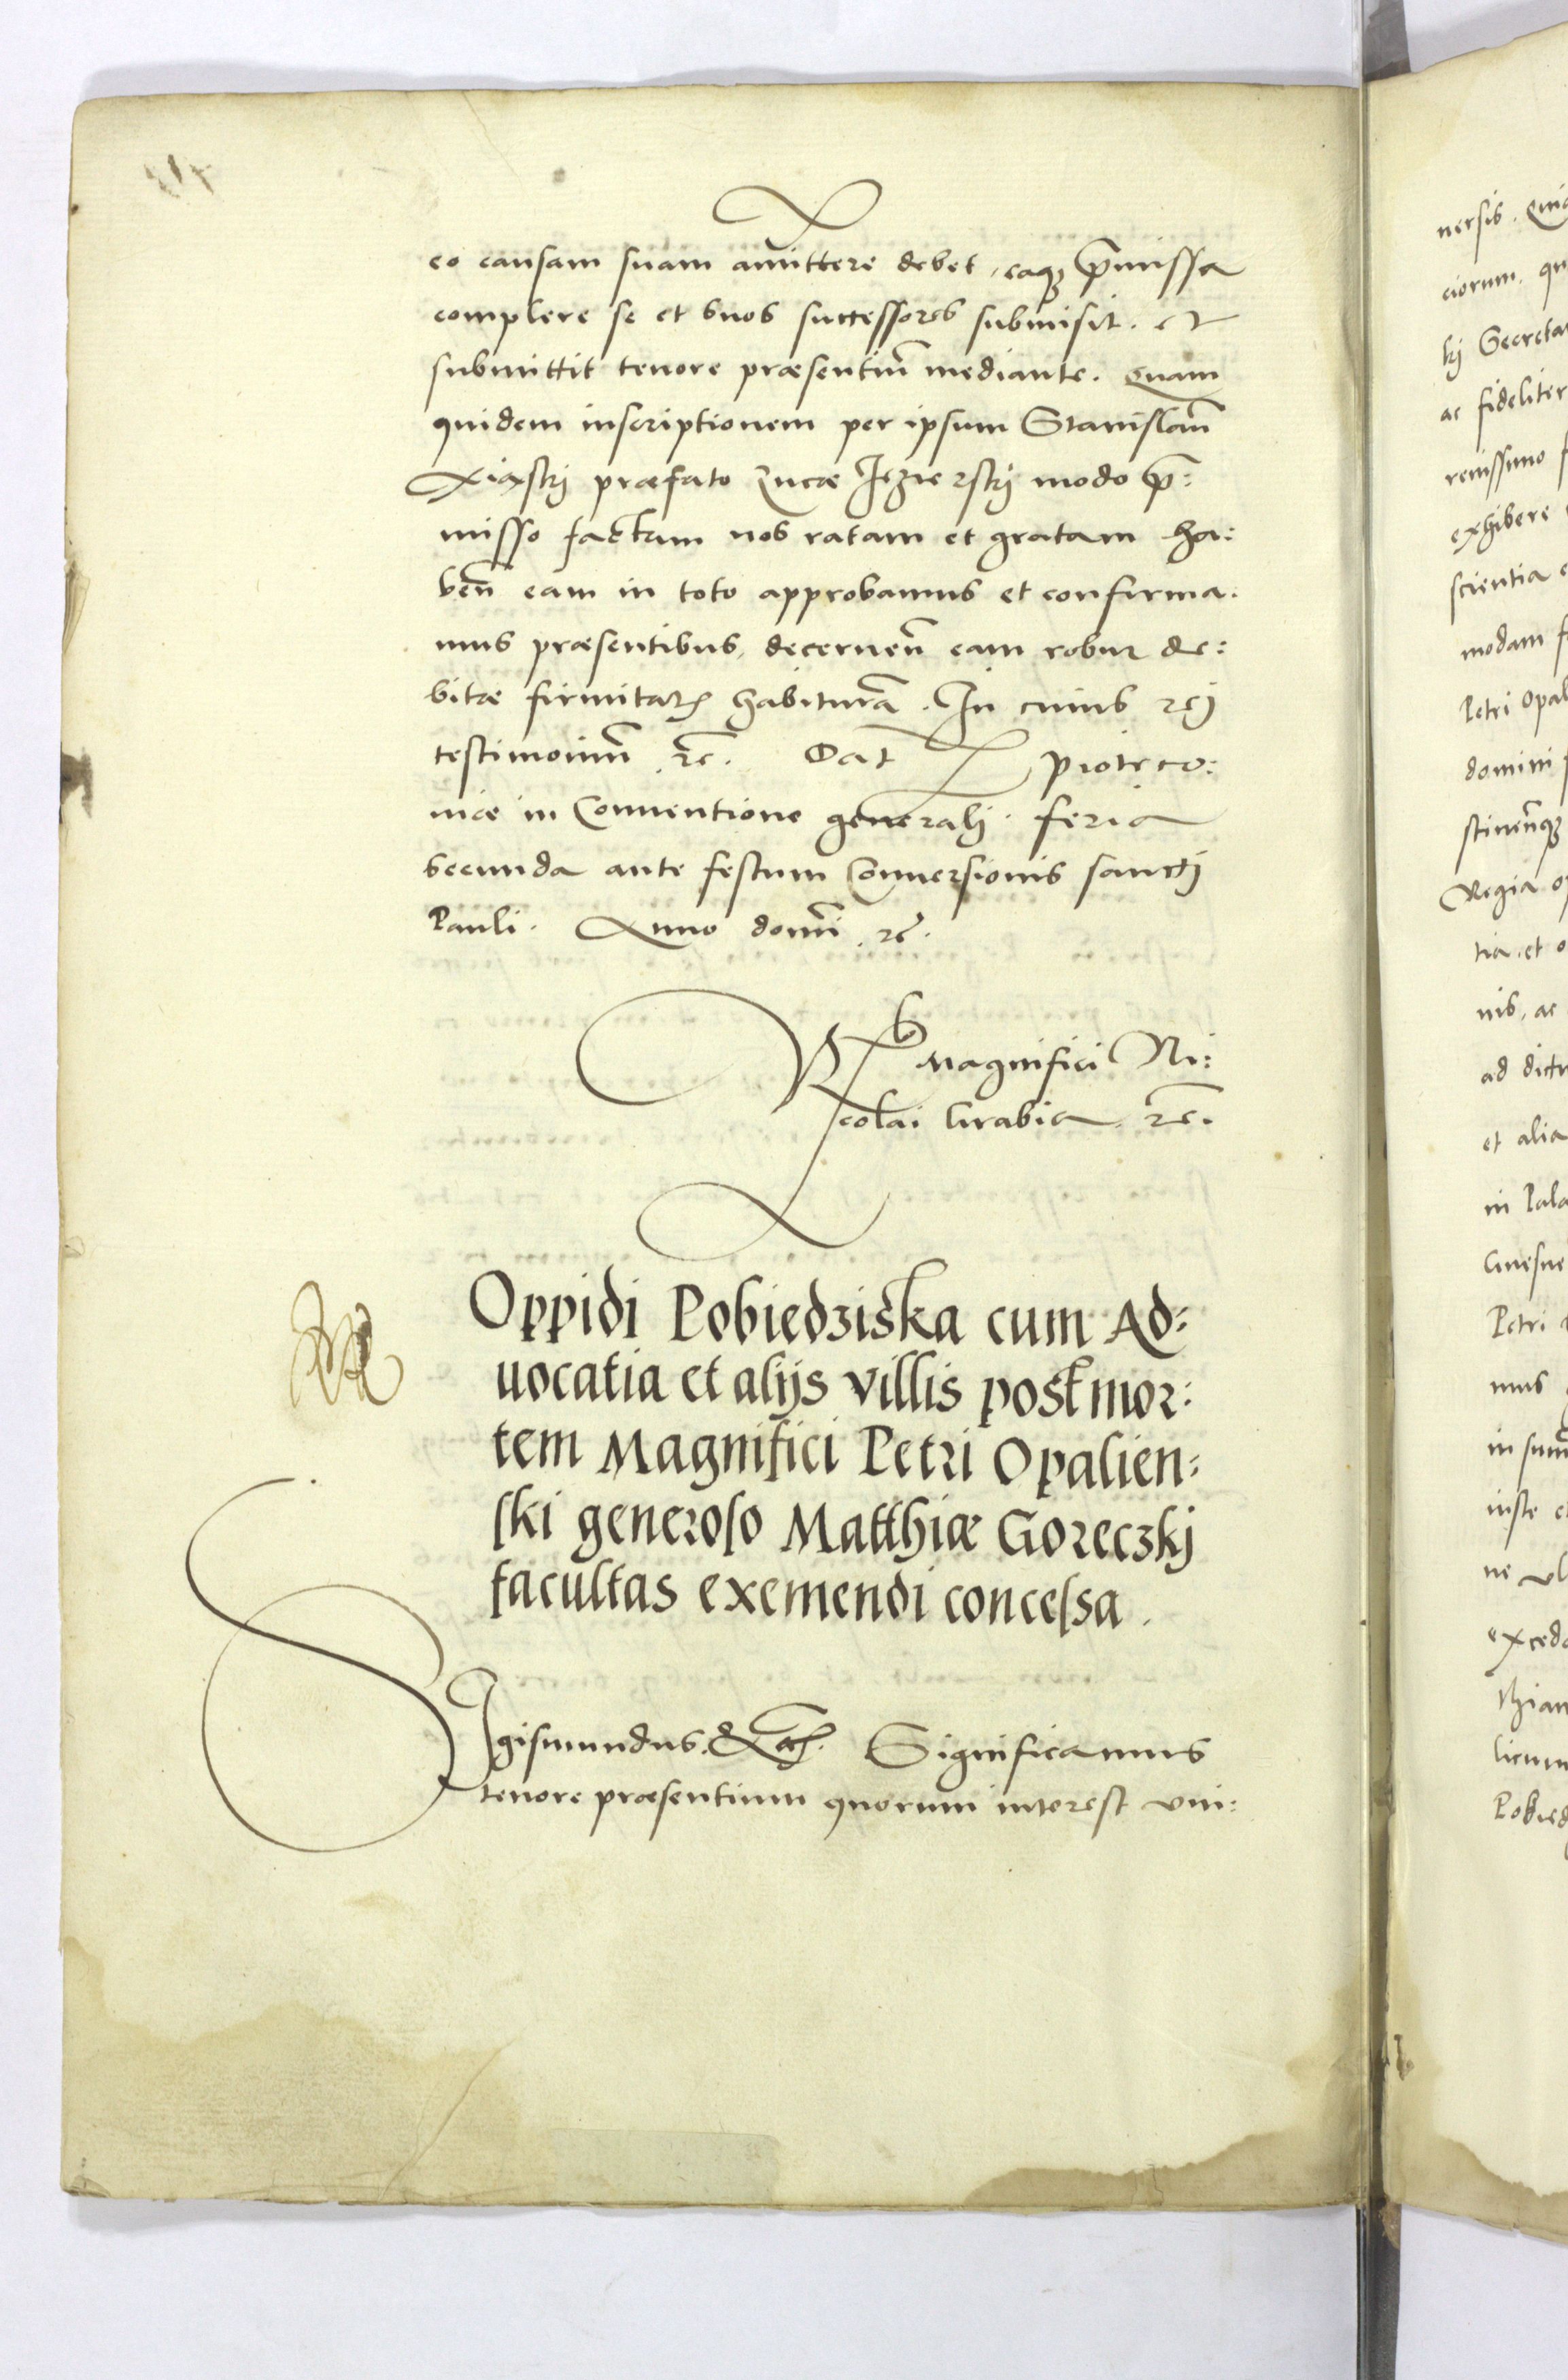 eo causam suam amittere debet, eaq₃ p̄missa
complere se et suos successores submisit. et
submittit tenore præsentiū mediante. Quam
quidem inscriptionem per ipsum Stanislaū
præfato Lucæ Jezierskj modo p̄:
misso factam nos ratam et gratam ha:
ben̄ eam in toto approbamus et confirma.
mus præsentibus, decernen̄ eam robur de:
bitæ firmitatꝭ habiturā. In cuius rej
testimoniū ꝛc̄. Dat Piotrco:
uiæ in Conuentione generalj. feria
secunda ante festum Conuersionis sanctj
Pauli. Anno domī ꝛc̄.
Rb Magnifici Ni:
colai Grabia ꝛc̄.
Oppidi Pobiedziska cum Ad:
uocatia et alijs villis post mor:
tem Magnifici Petri Opalien:
ski generoso Matthiæ Goreczkj
facultas exemendi concessa.
Sigismundus. Significamus
tenore præsentium quorum interest vni:
uersis. Qui
ciorum. qu
kj Secreta
ac fideliter
renissimo
exhibere
scientia
modam
Petri Opal
domini
stinenq₃
Regia
tia. et
nis, ac
ad dict
et alia
in Pala
Gnesne
Petri
mus
in sum
iuste
ne vl
exceda
thian
licum
Pobied